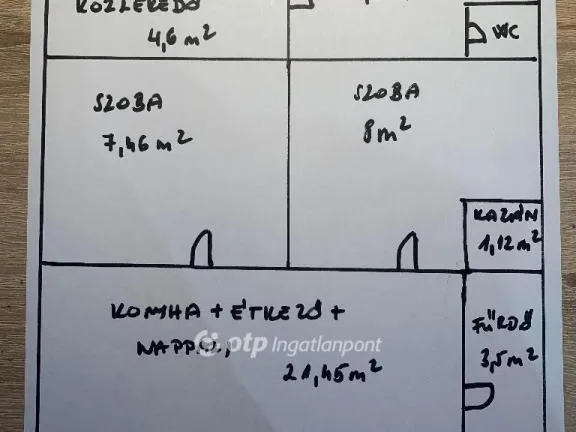 KÖZLEKEDŐ
4,6 m²
WC
SZOBA
7,46 m²
SZOBA
8 m²
KAZÁN
1,12 m²
KONYHA + ÉTKEZŐ +
NAPPALI,
21,45 m²
FÜRDŐ
3,5 m²
otp Ingatlanpont